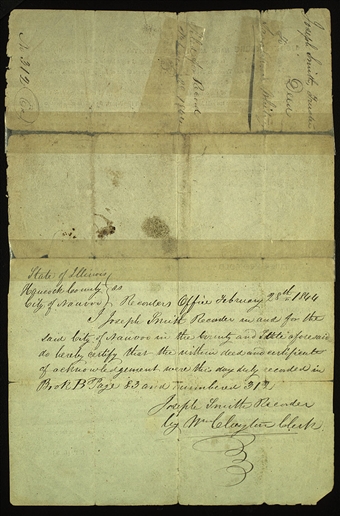 Joseph Smith, Trustee
to
Deed
No 312
State of Illinois
Hancock County } ss
City of Nauvoo } Recorders Office February 28th 1844
I Joseph Smith Recorder in and for the
said City of Nauvoo in the County and State aforesaid
do hereby certify that the within deed and certificate
of acknowledgement were this day duly recorded in
Book B Page 82 and numbered 312
Joseph Smith Recorder
by Wm Clayton Clerk